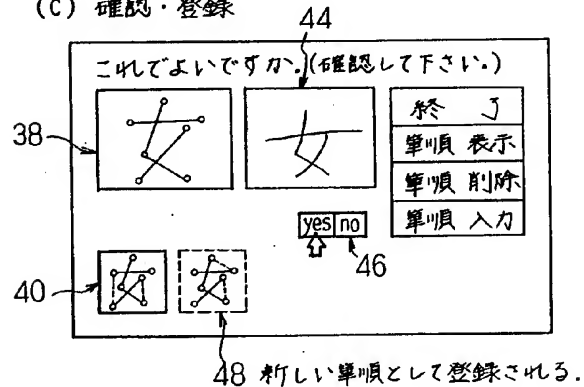 (C) 確認・登録
44
これでよいですか.(確認して下さい.)
38
女
終 了
筆順 表示
筆順 削除
筆順 入力
yes no
46
40
48 新しい筆順として登録される.